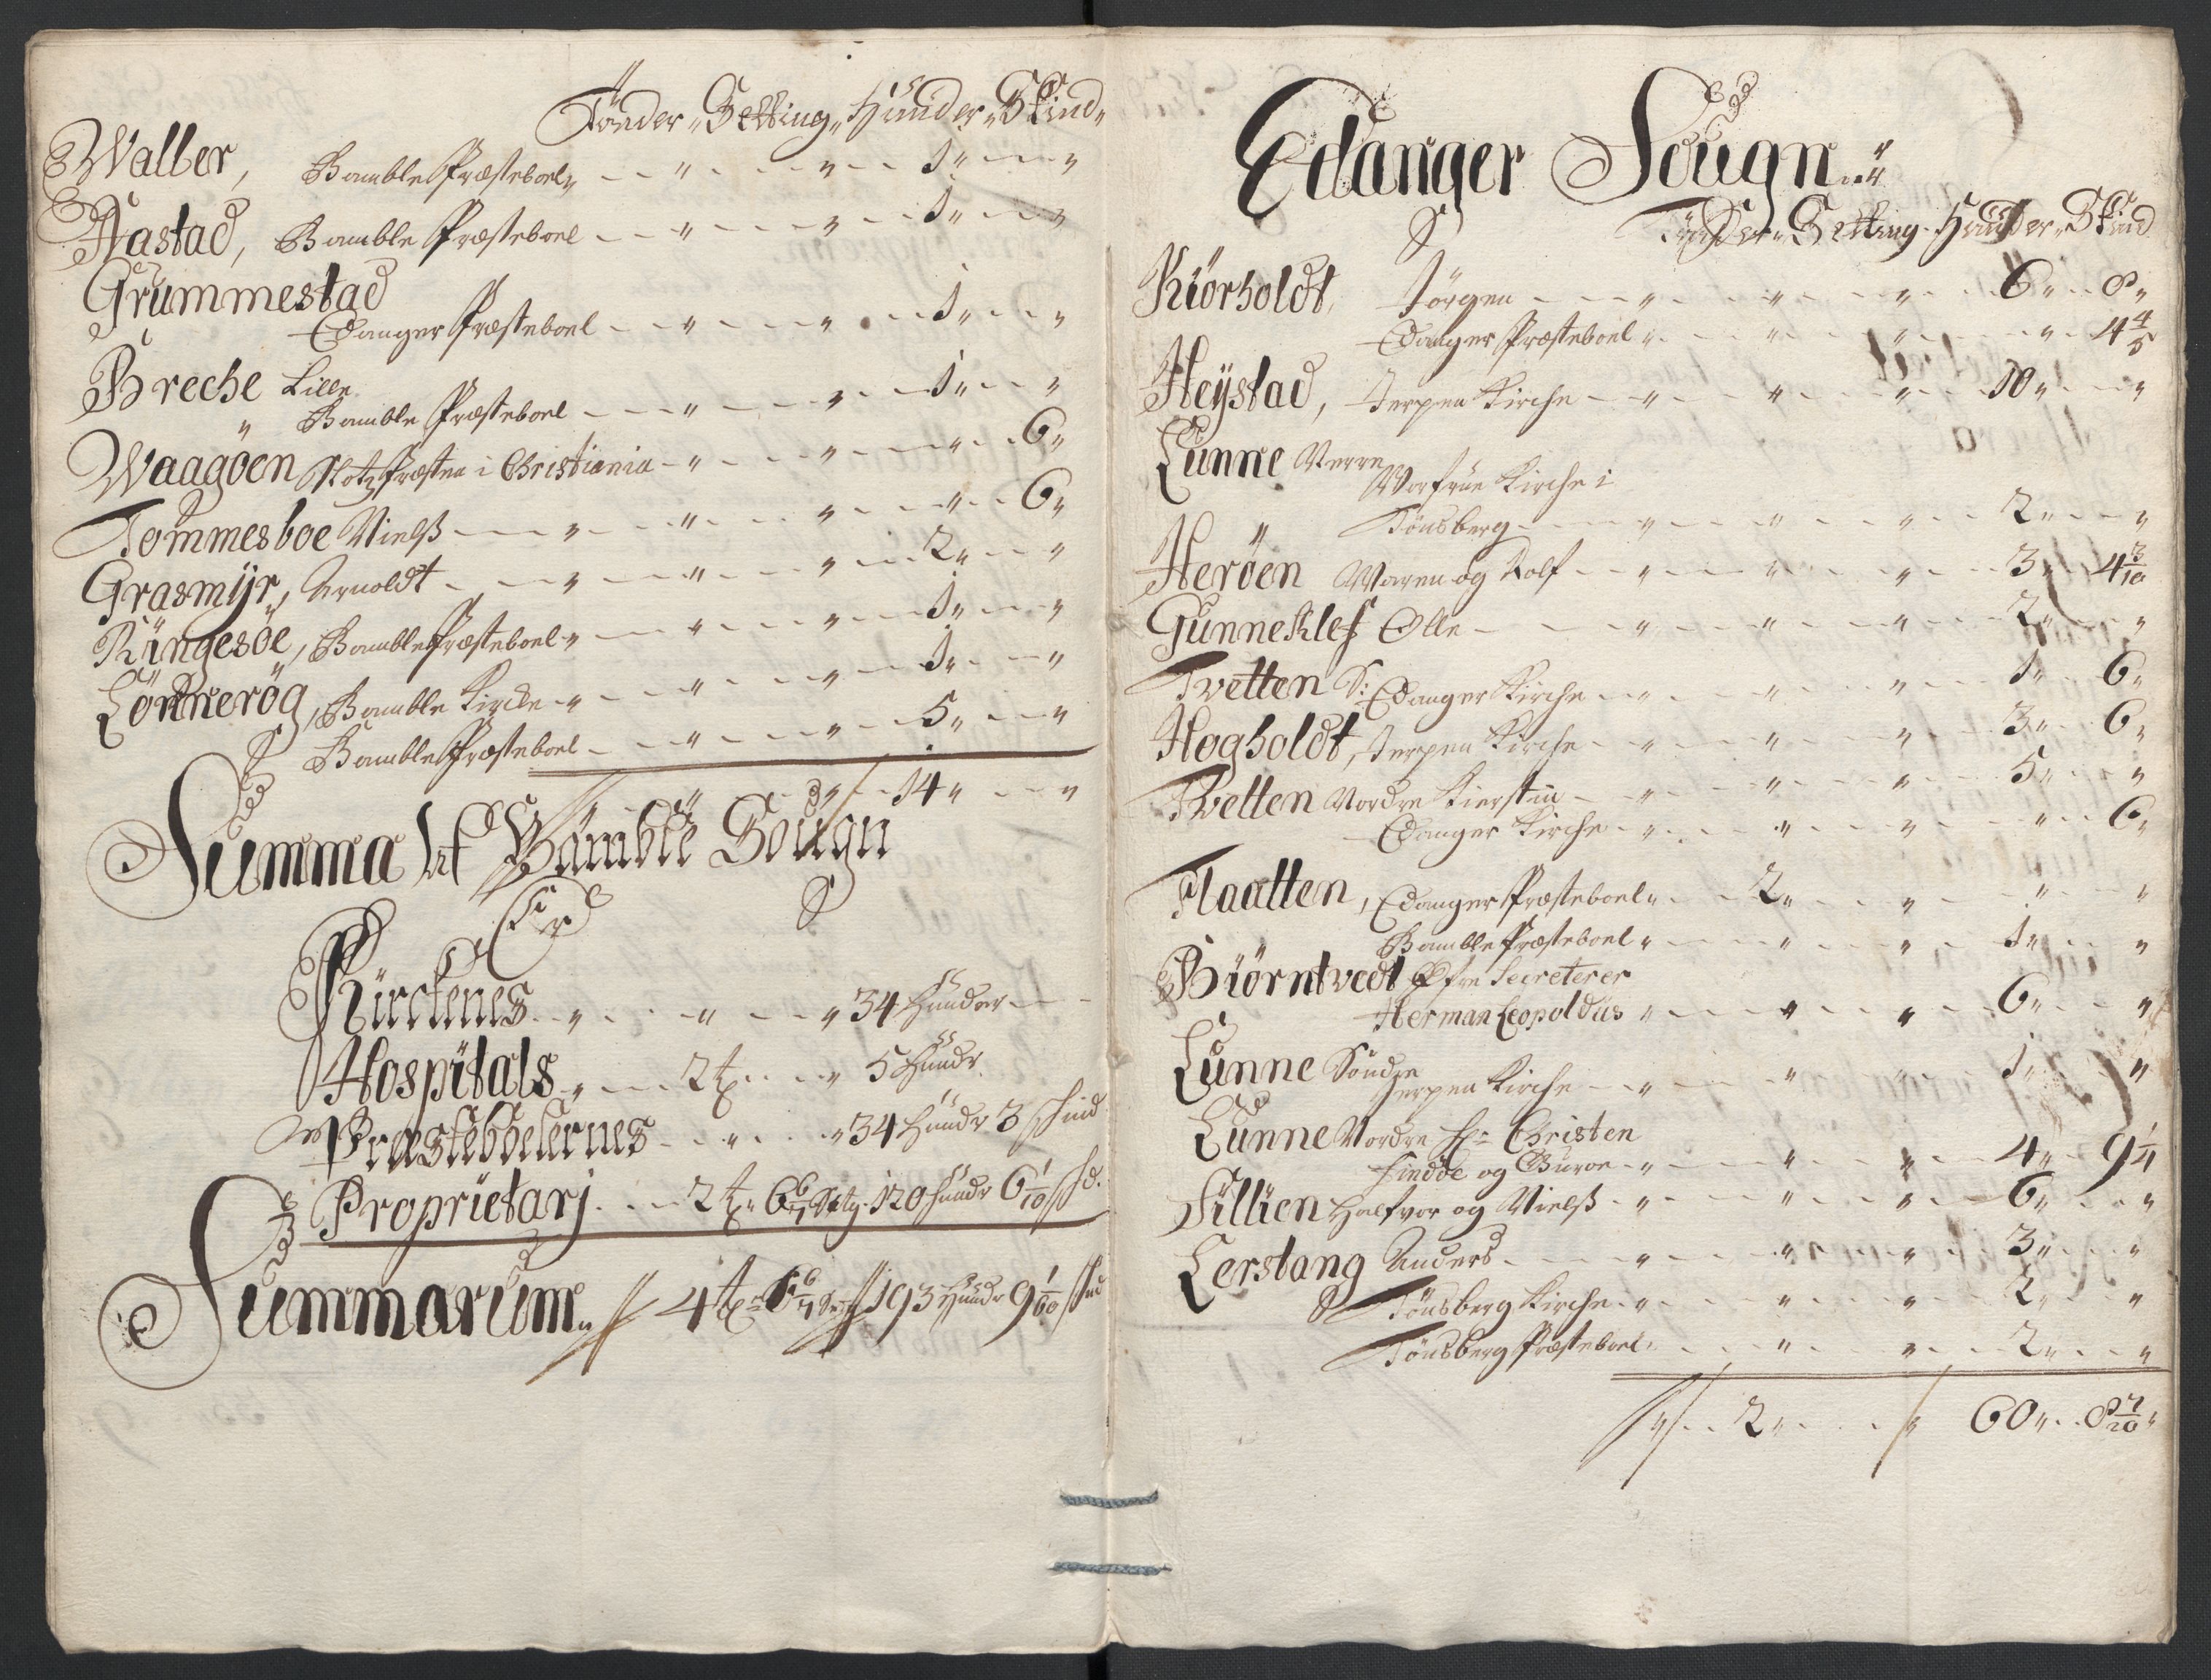 Tönder „ Setting „ Hüuder „ Skind „
Waller, Bamble Præsteboel „ — „ — „ — 1 „ — „
Aastad, Bamble Præsteboel — „ — „ — 1 „ — „
Grummestad
Edanger Præsteboel — „ — „ — 1 „ — „
Breche Lille
„ Bamble Præsteboel — „ — „ — 1 „ — „
Waagöen Slotz Præsten i Christiania — „ — „ — „ — 6 „
Tommesboe Nielß — „ — „ — „ — „ — 6 „
Grasmÿr, Arnoldt — „ — „ — „ — 2 „ — „
Ringesöe, Bamble Præsteboel „ — „ — „ — 1 „ — „
Lönnerög, Bamble Kircke „ — „ — „ — 1 „ — „
Bamble Præsteboel — „ — „ — 5 „ — „
„ — „ — 14 „ — „
Summa Af Bamble Sougn
Er
Kirckenes — „ — „ — „ 34 Hunder —
Hospitals „ — 2 t — „ 5 Hundr
Præsteboelernes — „ — „ 34 Hundr 3 skind
Proprietarj — 2 t „ 6 6/7 Setg. 120 Hundr 6 1/10 skd.
Summarum „ 4 t „ 6 6/7 Setg 193 Hundr 9 1/10 skd
Edanger Sougn „
Tönder „ Setting „ Hunder „ Skind
Kiörholdt, Jörgen — „ — „ — „ — 6 „ 8 „
Edanger Præsteboel „ — „ — „ — „ 4 4/5
Heÿstad, Jerpen Kirche — „ — „ — „ — 10 „ — „
Lunne Nerre
Worfrue Kirche i
„ Tönsberg — „ — „ — „ — 2 „ — „
Heröen Maren og Rolf — „ — „ — „ — 3 „ 4 3/10
Gunneklef Olle — „ — „ — „ — 2 „ — „
Tvetten S: Edanger Kirche — „ — „ — „ — 1 „ 6 „
Hogholdt, Jerpen Kirche — „ — „ — „ — 3 „ 6 „
Tvetten Nordre Kierstin — „ — „ — „ — 5 „ — „
Edanger Kirche — „ — „ — „ — „ 6 „
Flaatten, Edanger Præsteboel „ — 2 „ — „ — „ — „
Bamble Præsteboel „ — „ — „ — 1 „ — „
Biörntvedt Efr Secreterer
Herman Leopoldus „ — „ — „ — 6 „ — „
Lunne Söndre
Jerpen Kirche — „ — „ — „ — 1 „ — „
Lunne Nordre Hr Christen
Lindoe og Guroe — „ — „ — „ — 4 „ 9 1/4
Sillien Halfvor og Nielß — „ — „ — „ — 6 „ — „
Lerstang Anders — „ — „ — „ — 3 „ — „
Tönsberg Kirche — „ — „ — „ — 2 „ — „
Tönsberg Præsteboel — „ — „ — 2 „ — „
„ — 2 „ — „ 60 „ 8 7/20 „